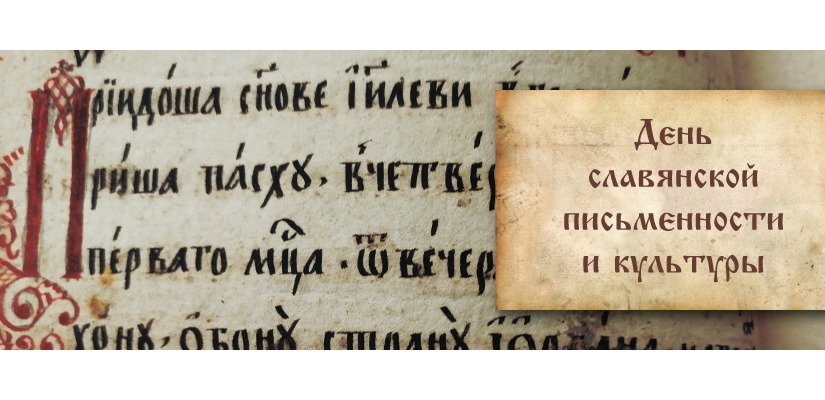 Прїидо́ша сн҃ове і҆и҃леви
ри́ша па́схꙋ, в̾чет̾ве́р
пе́рваго мц҃а · ѿ ве́чер
хо́нꙋ, ѻ҆бонꙋ̀ странꙋ̀ і҆ѻрда́на
День
славянской
письменности
и культуры